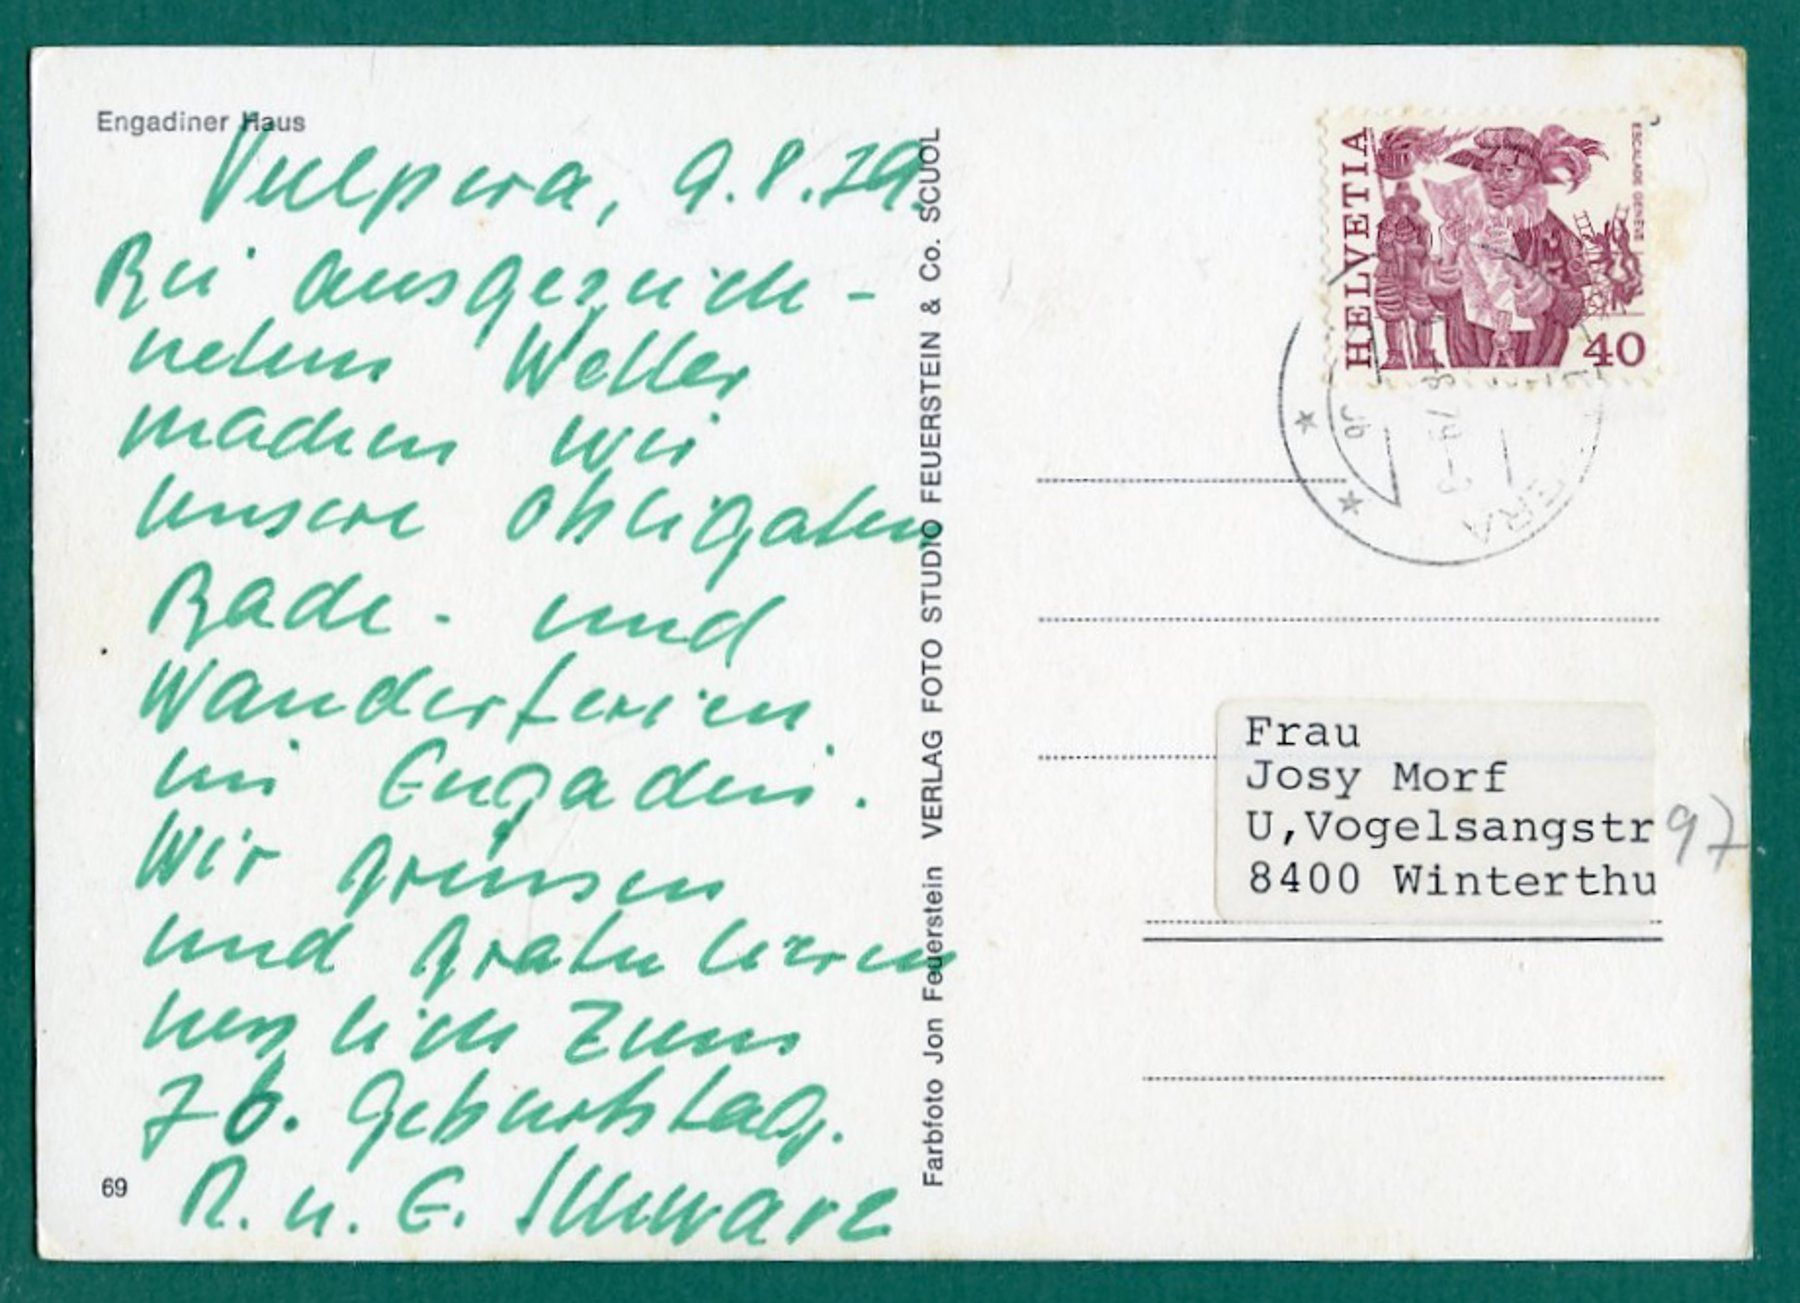 Engadiner Haus
Vulpera, 9.8.79.
Bei ausgezeich-
netem Wetter
machen wir
unsere obligaten
Bade- und
Wanderferien
im Engadin.
Wir grüssen
und gratulieren
herzlich zum
76. Geburtstag.
R. u. E. Schwarz
69
Farbfoto Jon Feuerstein VERLAG FOTO STUDIO FEUERSTEIN & Co. SCUOL
HELVETIA
ESCALADE GENÈVE
40
Frau
Josy Morf
U,Vogelsangstr 97
8400 Winterthu